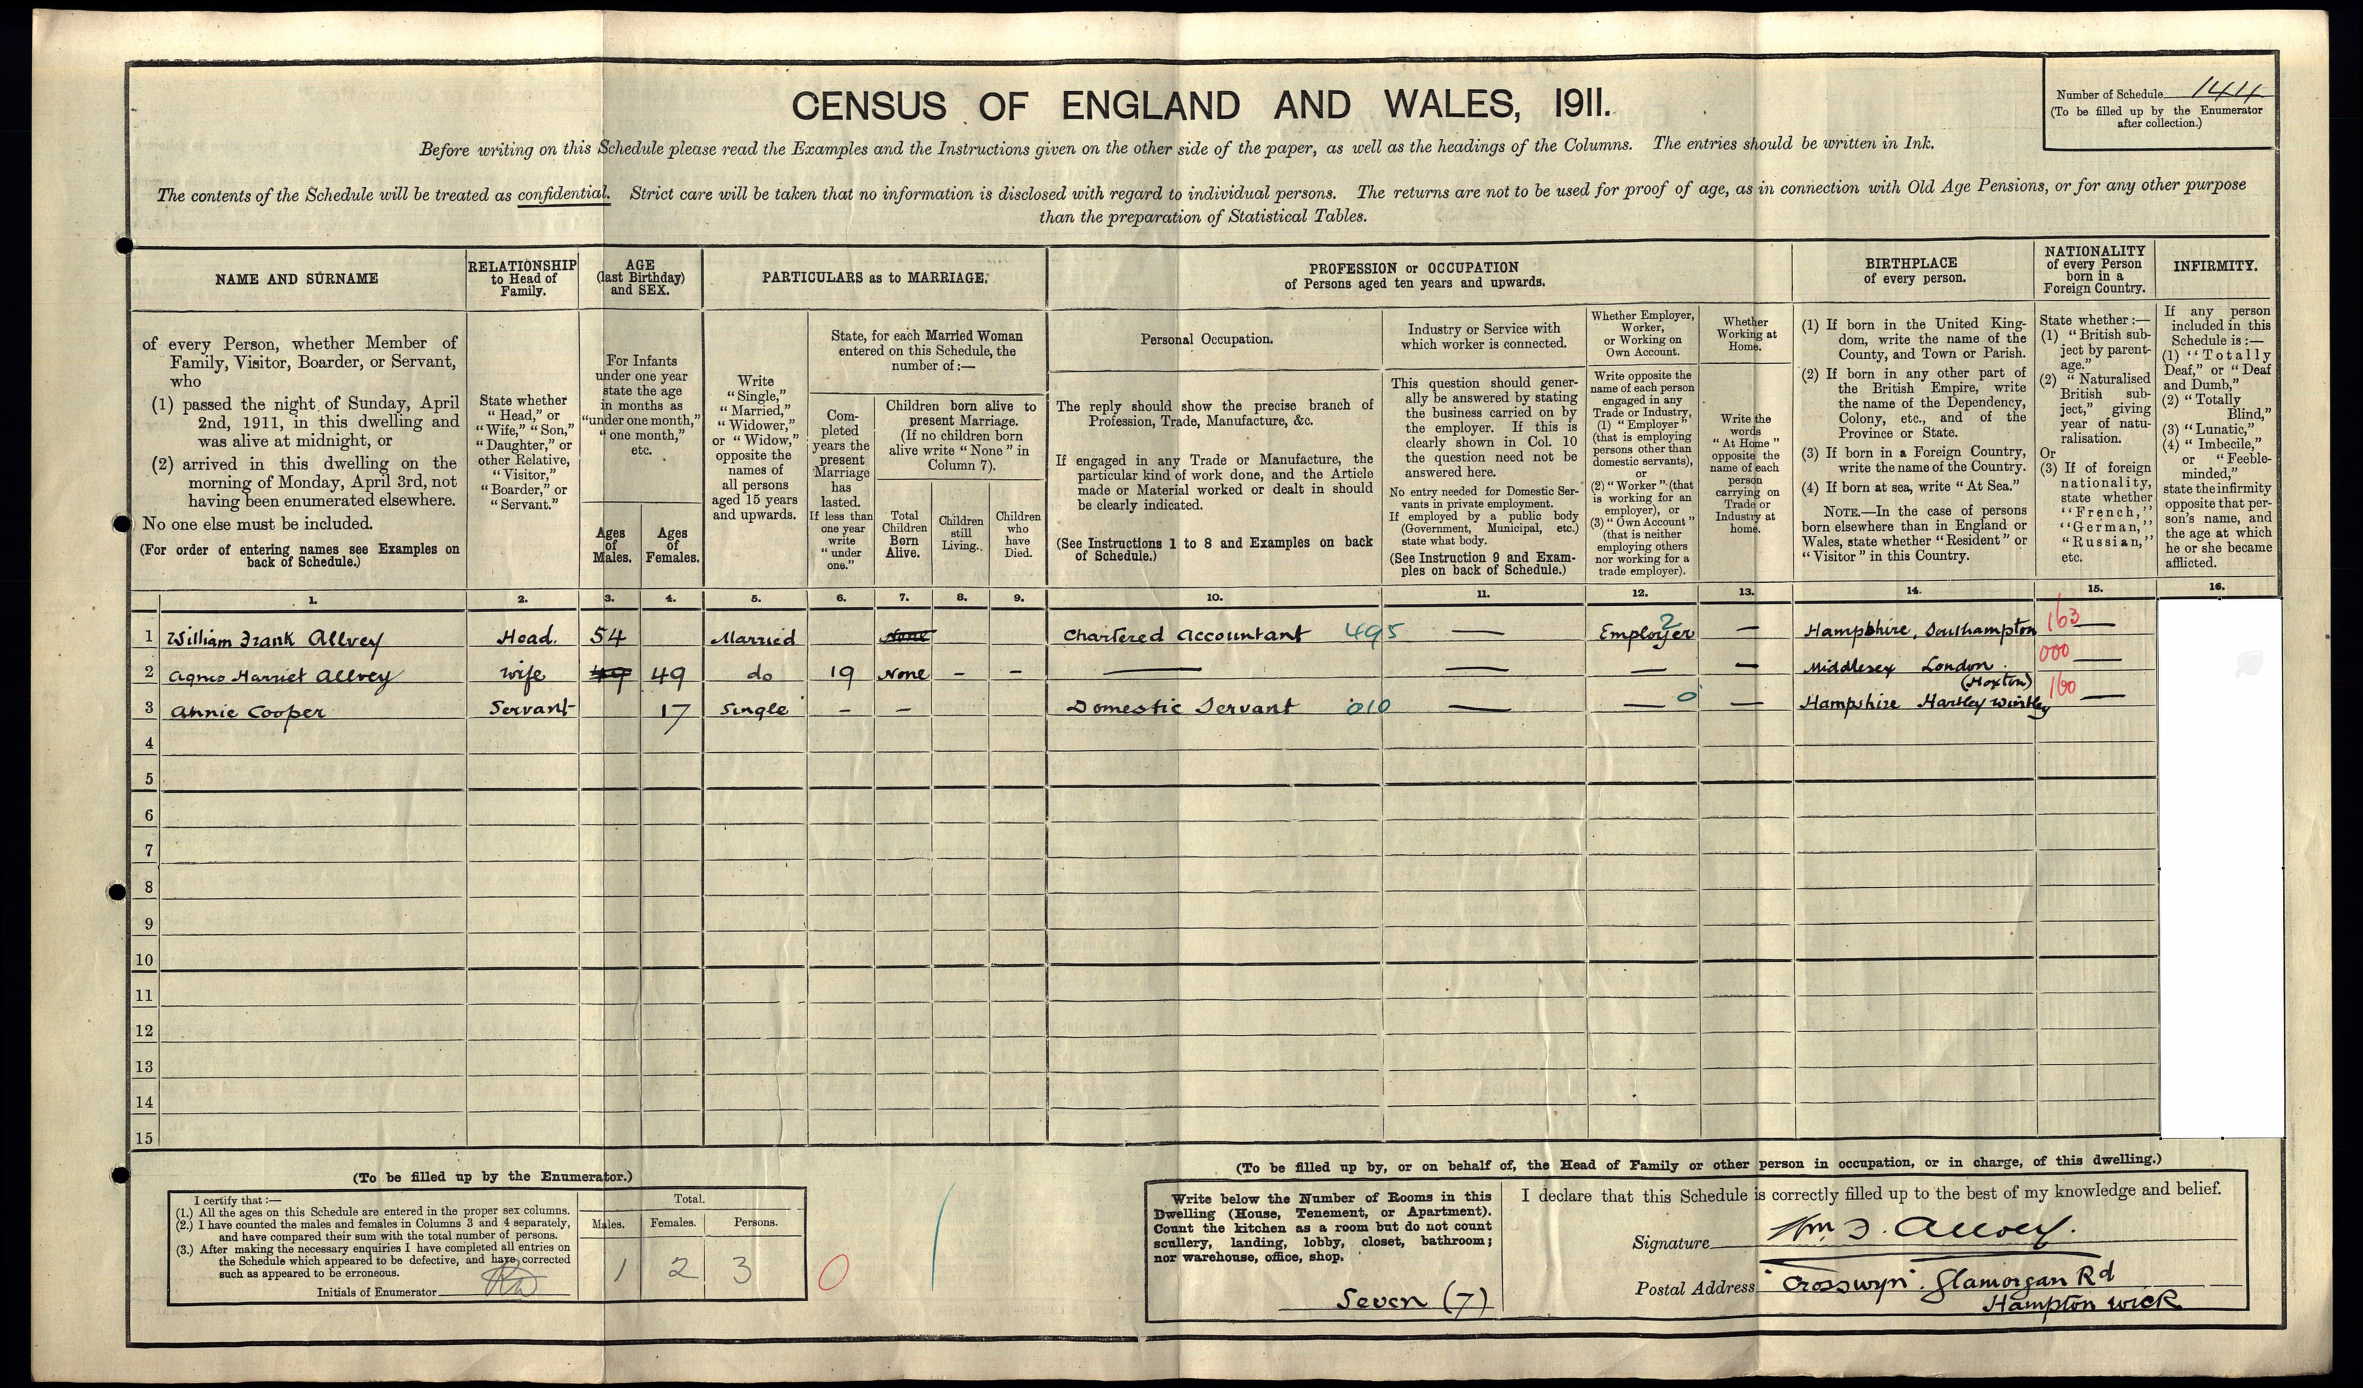 CENSUS OF ENGLAND AND WALES, 1911.
Number of Schedule 144
(To be filled up by the Enumerator
after collection.)
Before writing on this Schedule please read the Examples and the Instructions given on the other side of the paper, as well as the headings of the Columns. The entries should be written in Ink.
The contents of the Schedule will be treated as confidential. Strict care will be taken that no information is disclosed with regard to individual persons. The returns are not to be used for proof of age, as in connection with Old Age Pensions, or for any other purpose
than the preparation of Statistical Tables.
NAME AND SURNAME
of every Person, whether Member of
Family, Visitor, Boarder, or Servant,
who
(1) passed the night of Sunday, April
2nd, 1911, in this dwelling and
was alive at midnight, or
(2) arrived in this dwelling on the
morning of Monday, April 3rd, not
having been enumerated elsewhere.
No one else must be included.
(For order of entering names see Examples on
back of Schedule.)
RELATIONSHIP
to Head of
Family.
State whether
"Head," or
"Wife," "Son,"
"Daughter," or
other Relative,
"Visitor,"
"Boarder," or
"Servant."
AGE
(last Birthday)
and SEX.
For Infants
under one year
state the age
in months as
"under one month,"
"one month,"
etc.
Ages
of
Males.
Ages
of
Females.
PARTICULARS as to MARRIAGE.
Write
"Single,"
"Married,"
"Widower,"
or "Widow,"
opposite the
names of
all persons
aged 15 years
and upwards.
State, for each Married Woman
entered on this Schedule, the
number of:—
Com-
pleted
years the
present
Marriage
has
lasted.
If less than
one year
write
"under
one."
Children born alive to
present Marriage.
(If no children born
alive write "None" in
Column 7).
Total
Children
Born
Alive.
Children
still
Living.
Children
who
have
Died.
PROFESSION or OCCUPATION
of Persons aged ten years and upwards.
Personal Occupation.
The reply should show the precise branch of
Profession, Trade, Manufacture, &c.
If engaged in any Trade or Manufacture, the
particular kind of work done, and the Article
made or Material worked or dealt in should
be clearly indicated.
(See Instructions 1 to 8 and Examples on back
of Schedule.)
Industry or Service with
which worker is connected.
This question should gener-
ally be answered by stating
the business carried on by
the employer. If this is
clearly shown in Col. 10
the question need not be
answered here.
No entry needed for Domestic Ser-
vants in private employment.
If employed by a public body
(Government, Municipal, etc.)
state what body.
(See Instruction 9 and Exam-
ples on back of Schedule.)
Whether Employer,
Worker,
or Working on
Own Account.
Write opposite the
name of each person
engaged in any
Trade or Industry,
(1) "Employer"
(that is employing
persons other than
domestic servants),
or
(2) "Worker" (that
is working for an
employer), or
(3) "Own Account"
(that is neither
employing others
nor working for a
trade employer).
Whether
Working at
Home.
Write the
words
"At Home"
opposite the
name of each
person
carrying on
Trade or
Industry at
home.
BIRTHPLACE
of every person.
(1) If born in the United King-
dom, write the name of the
County, and Town or Parish.
(2) If born in any other part of
the British Empire, write
the name of the Dependency,
Colony, etc., and of the
Province or State.
(3) If born in a Foreign Country,
write the name of the Country.
(4) If born at sea, write "At Sea."
NOTE.—In the case of persons
born elsewhere than in England or
Wales, state whether "Resident" or
"Visitor" in this Country.
NATIONALITY
of every Person
born in a
Foreign Country.
State whether :—
(1) "British sub-
ject by parent-
age."
(2) "Naturalised
British sub-
ject," giving
year of natu-
ralisation.
Or
(3) If of foreign
nationality,
state whether
"French,"
"German,"
"Russian,"
etc.
INFIRMITY.
If any person
included in this
Schedule is:—
(1) "Totally
Deaf," or "Deaf
and Dumb,"
(2) "Totally
Blind,"
(3) "Lunatic,"
(4) "Imbecile,"
or "Feeble-
minded,"
state the infirmity
opposite that per-
son's name, and
the age at which
he or she became
afflicted.
1. 2. 3. 4. 5. 6. 7. 8. 9. 10. 11. 12. 13. 14. 15. 16.
1 William Frank Allvey Head. 54 Married None Chartered Accountant 495 — Employer 2 — Hampshire, Southampton 163 —
2 Agnes Harriet Allvey Wife 49 49 do 19 None – – — — — — Middlesex London. (Hoxton) 000 —
3 Annie Cooper Servant 17 Single – – Domestic Servant 010 — — 0 — Hampshire Hartley Wintley 160 —
4
5
6
7
8
9
10
11
12
13
14
15
(To be filled up by the Enumerator.)
I certify that:—
(1.) All the ages on this Schedule are entered in the proper sex columns.
(2.) I have counted the males and females in Columns 3 and 4 separately,
and have compared their sum with the total number of persons.
(3.) After making the necessary enquiries I have completed all entries on
the Schedule which appeared to be defective, and have corrected
such as appeared to be erroneous.
Initials of Enumerator
Total.
Males. Females. Persons.
1 2 3
0
(To be filled up by, or on behalf of, the Head of Family or other person in occupation, or in charge, of this dwelling.)
Write below the Number of Rooms in this
Dwelling (House, Tenement, or Apartment).
Count the kitchen as a room but do not count
scullery, landing, lobby, closet, bathroom;
nor warehouse, office, shop.
Seven (7)
I declare that this Schedule is correctly filled up to the best of my knowledge and belief.
Signature Wm F. Allvey.
Postal Address "Crosswyn" Glamorgan Rd
Hampton Wick